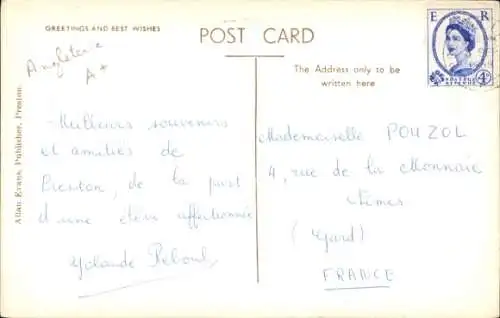 GREETINGS AND BEST WISHES
POST CARD
E R
POSTAGE
REVENUE
4D
Angleterre
A+
The Address only to be
written here
Allan Evans, Publisher, Preston.
Meilleurs souvenirs
et amitiés de
Preston, de la part
d'une élève affectionnée
Yolande Reboul
Mademoiselle POUZOL
4, rue de la Monnaie
Nîmes
(Gard)
FRANCE